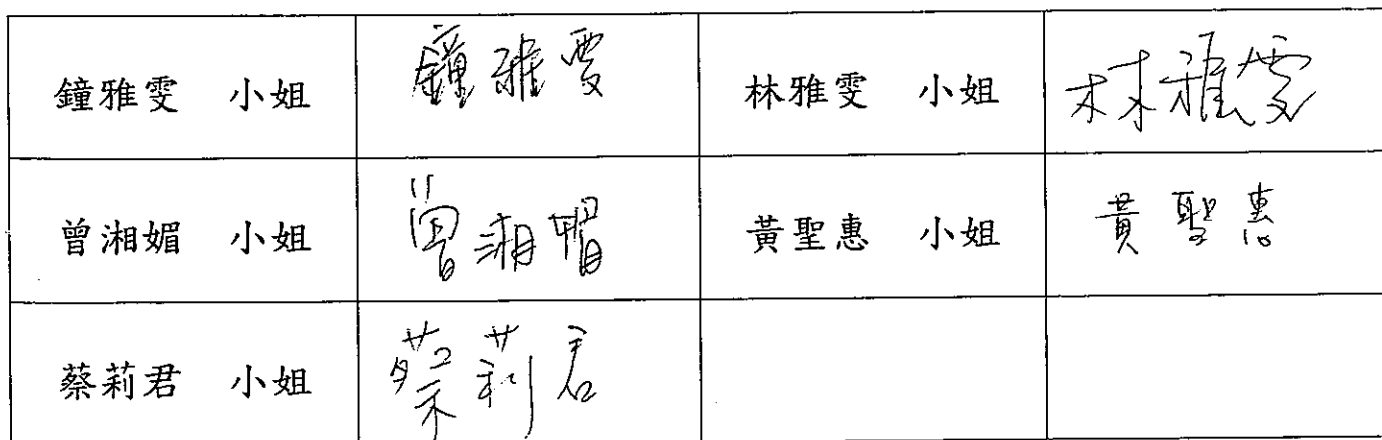 鐘雅雯 小姐 鐘雅雯 林雅雯 小姐 林雅雯
曾湘媚 小姐 曾湘媚 黃聖惠 小姐 黃聖惠
蔡莉君 小姐 蔡莉君